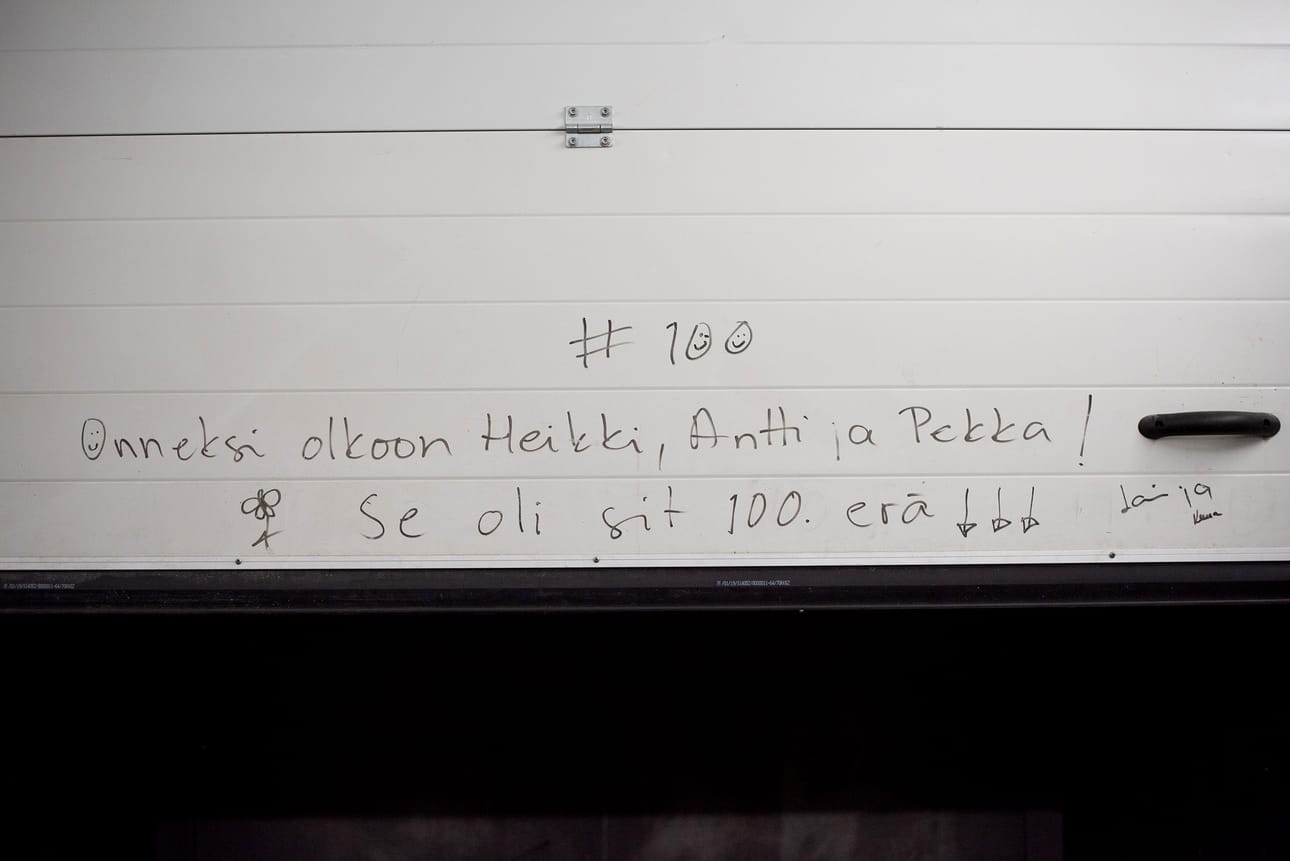 # 100
Onneksi olkoon Heikki, Antti ja Pekka!
Se oli sit 100. erä ↓↓↓
ja